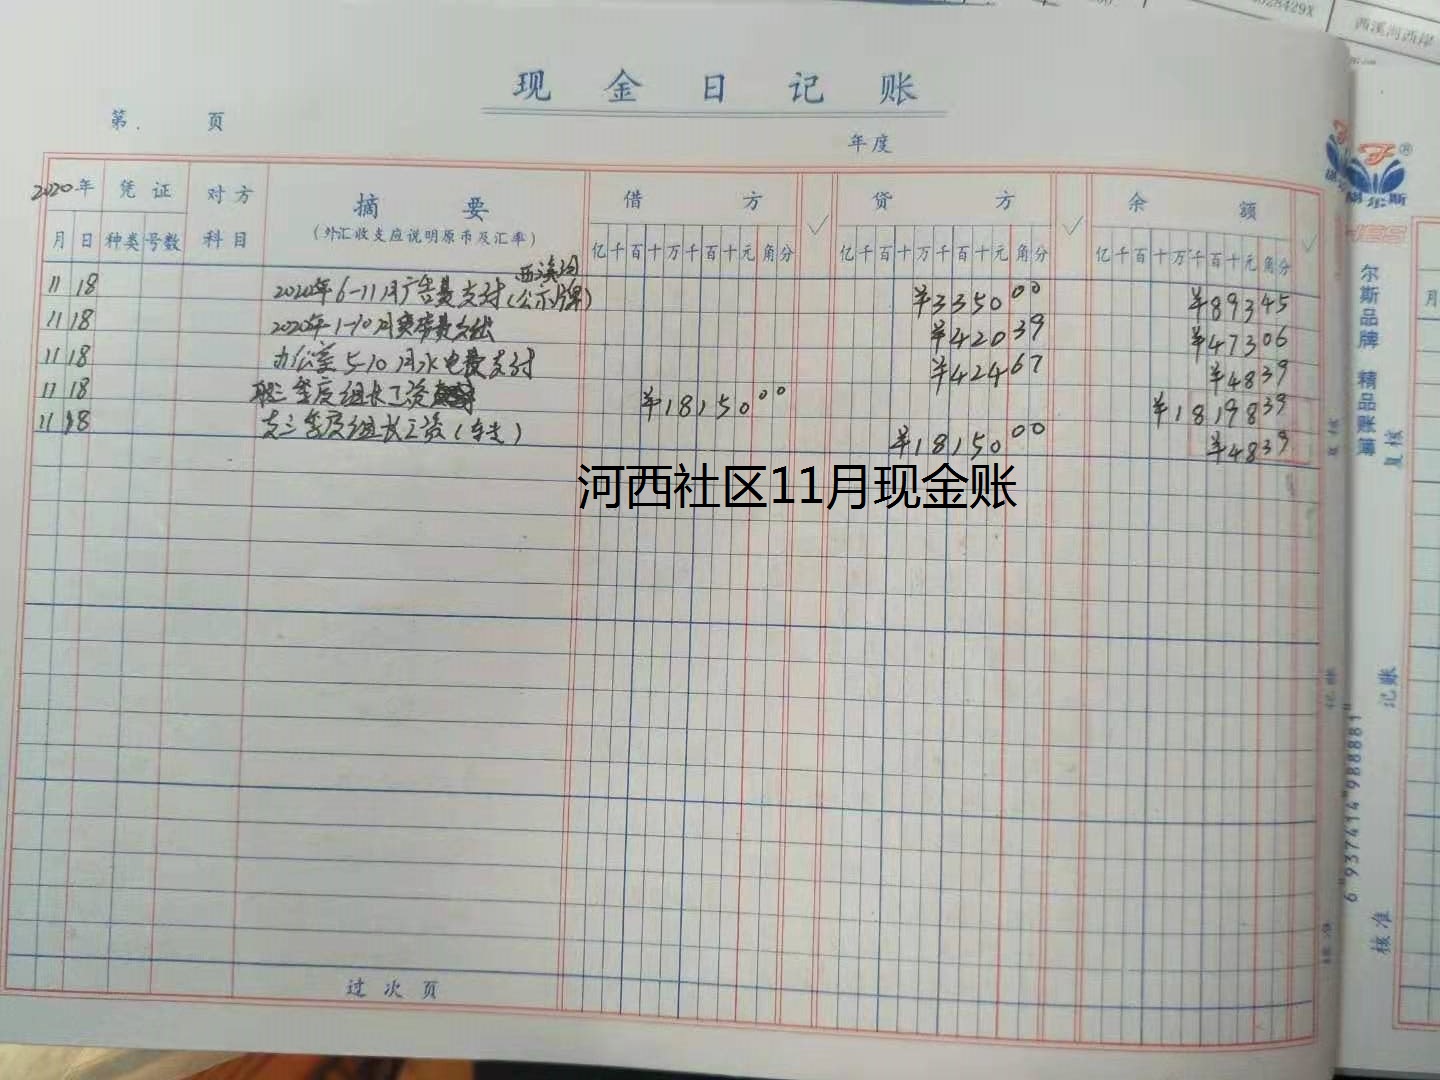 028429X
西溪河西岸
现 金 日 记 账
第 页
年度
2020年 凭 证 对 方 科 目 摘 要 借 方 贷 方 余 额
(外汇收支应说明原币及汇率)
月 日 种类 号数 亿千百十万千百十元角分 亿千百十万千百十元角分 亿千百十万千百十元角分
西溪河
11 18 2020年6-11月广告费支付(公示牌) ¥3350 00 ¥89345
11 18 2020年1-10月 ¥42039 ¥47306
11 18 办公室5-10月水电费支付 ¥42467 ¥4839
11 18 三季度组长工资 ¥18150 00 ¥1819839
11 18 支三季度组长工资 ¥18150 00 ¥4839
河西社区11月现金账
过 次 页
®
尔斯
尔斯品牌 精品账簿
复核
记账
核准
6"937414"988881"
月